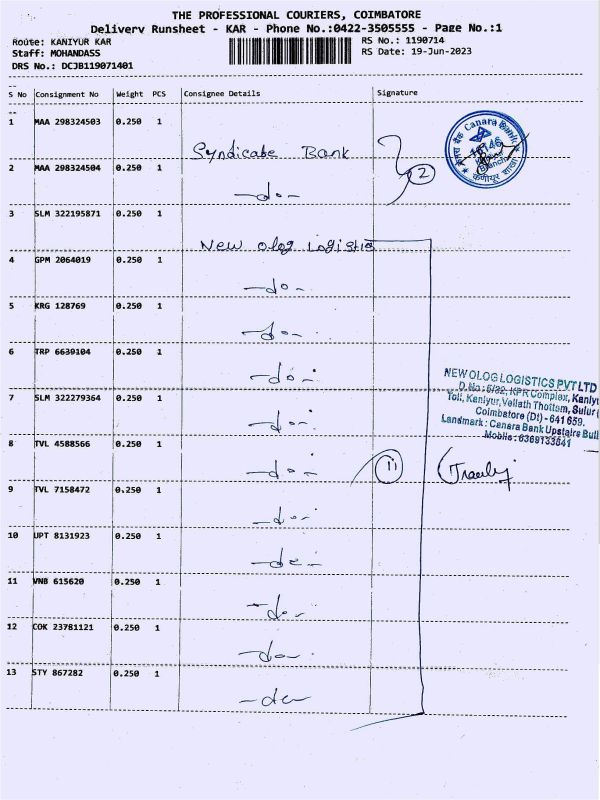 THE PROFESSIONAL COURIERS, COIMBATORE
Delivery Runsheet - KAR - Phone No.:0422-3505555 - Page No.:1
Route: KANIYUR KAR
RS No.: 1190714
Staff: MOHANDASS
RS Date: 19-Jun-2023
DRS No.: DCJB119071401
S No Consignment No Weight PCS Consignee Details Signature
1 MAA 298324503 0.250 1
Syndicate Bank
2 MAA 298324504 0.250 1
-do-
2
Canara Bank
केनरा बैंक
3 SLM 322195871 0.250 1
New olog Logistic
4 GPM 2064019 0.250 1
-do-
5 KRG 128769 0.250 1
-do-
6 TRP 6639104 0.250 1
-do-
7 SLM 322279364 0.250 1
-do-
NEW OLOG LOGISTICS PVT LTD
D.No: 5/32, KPR Complex, Kaniyu
Toll, Kaniyur, Vellath Thottam, Sulur
Coimbatore (Dt) - 641 659.
Landmark : Canara Bank Upstairs Buil
Mobile : 6369133641
8 TVL 4588566 0.250 1
-do-
11
9 TVL 7158472 0.250 1
-do-
10 UPT 8131923 0.250 1
-do-
11 VNB 615620 0.250 1
-do-
12 COK 23781121 0.250 1
-do-
13 STY 867282 0.250 1
-do-